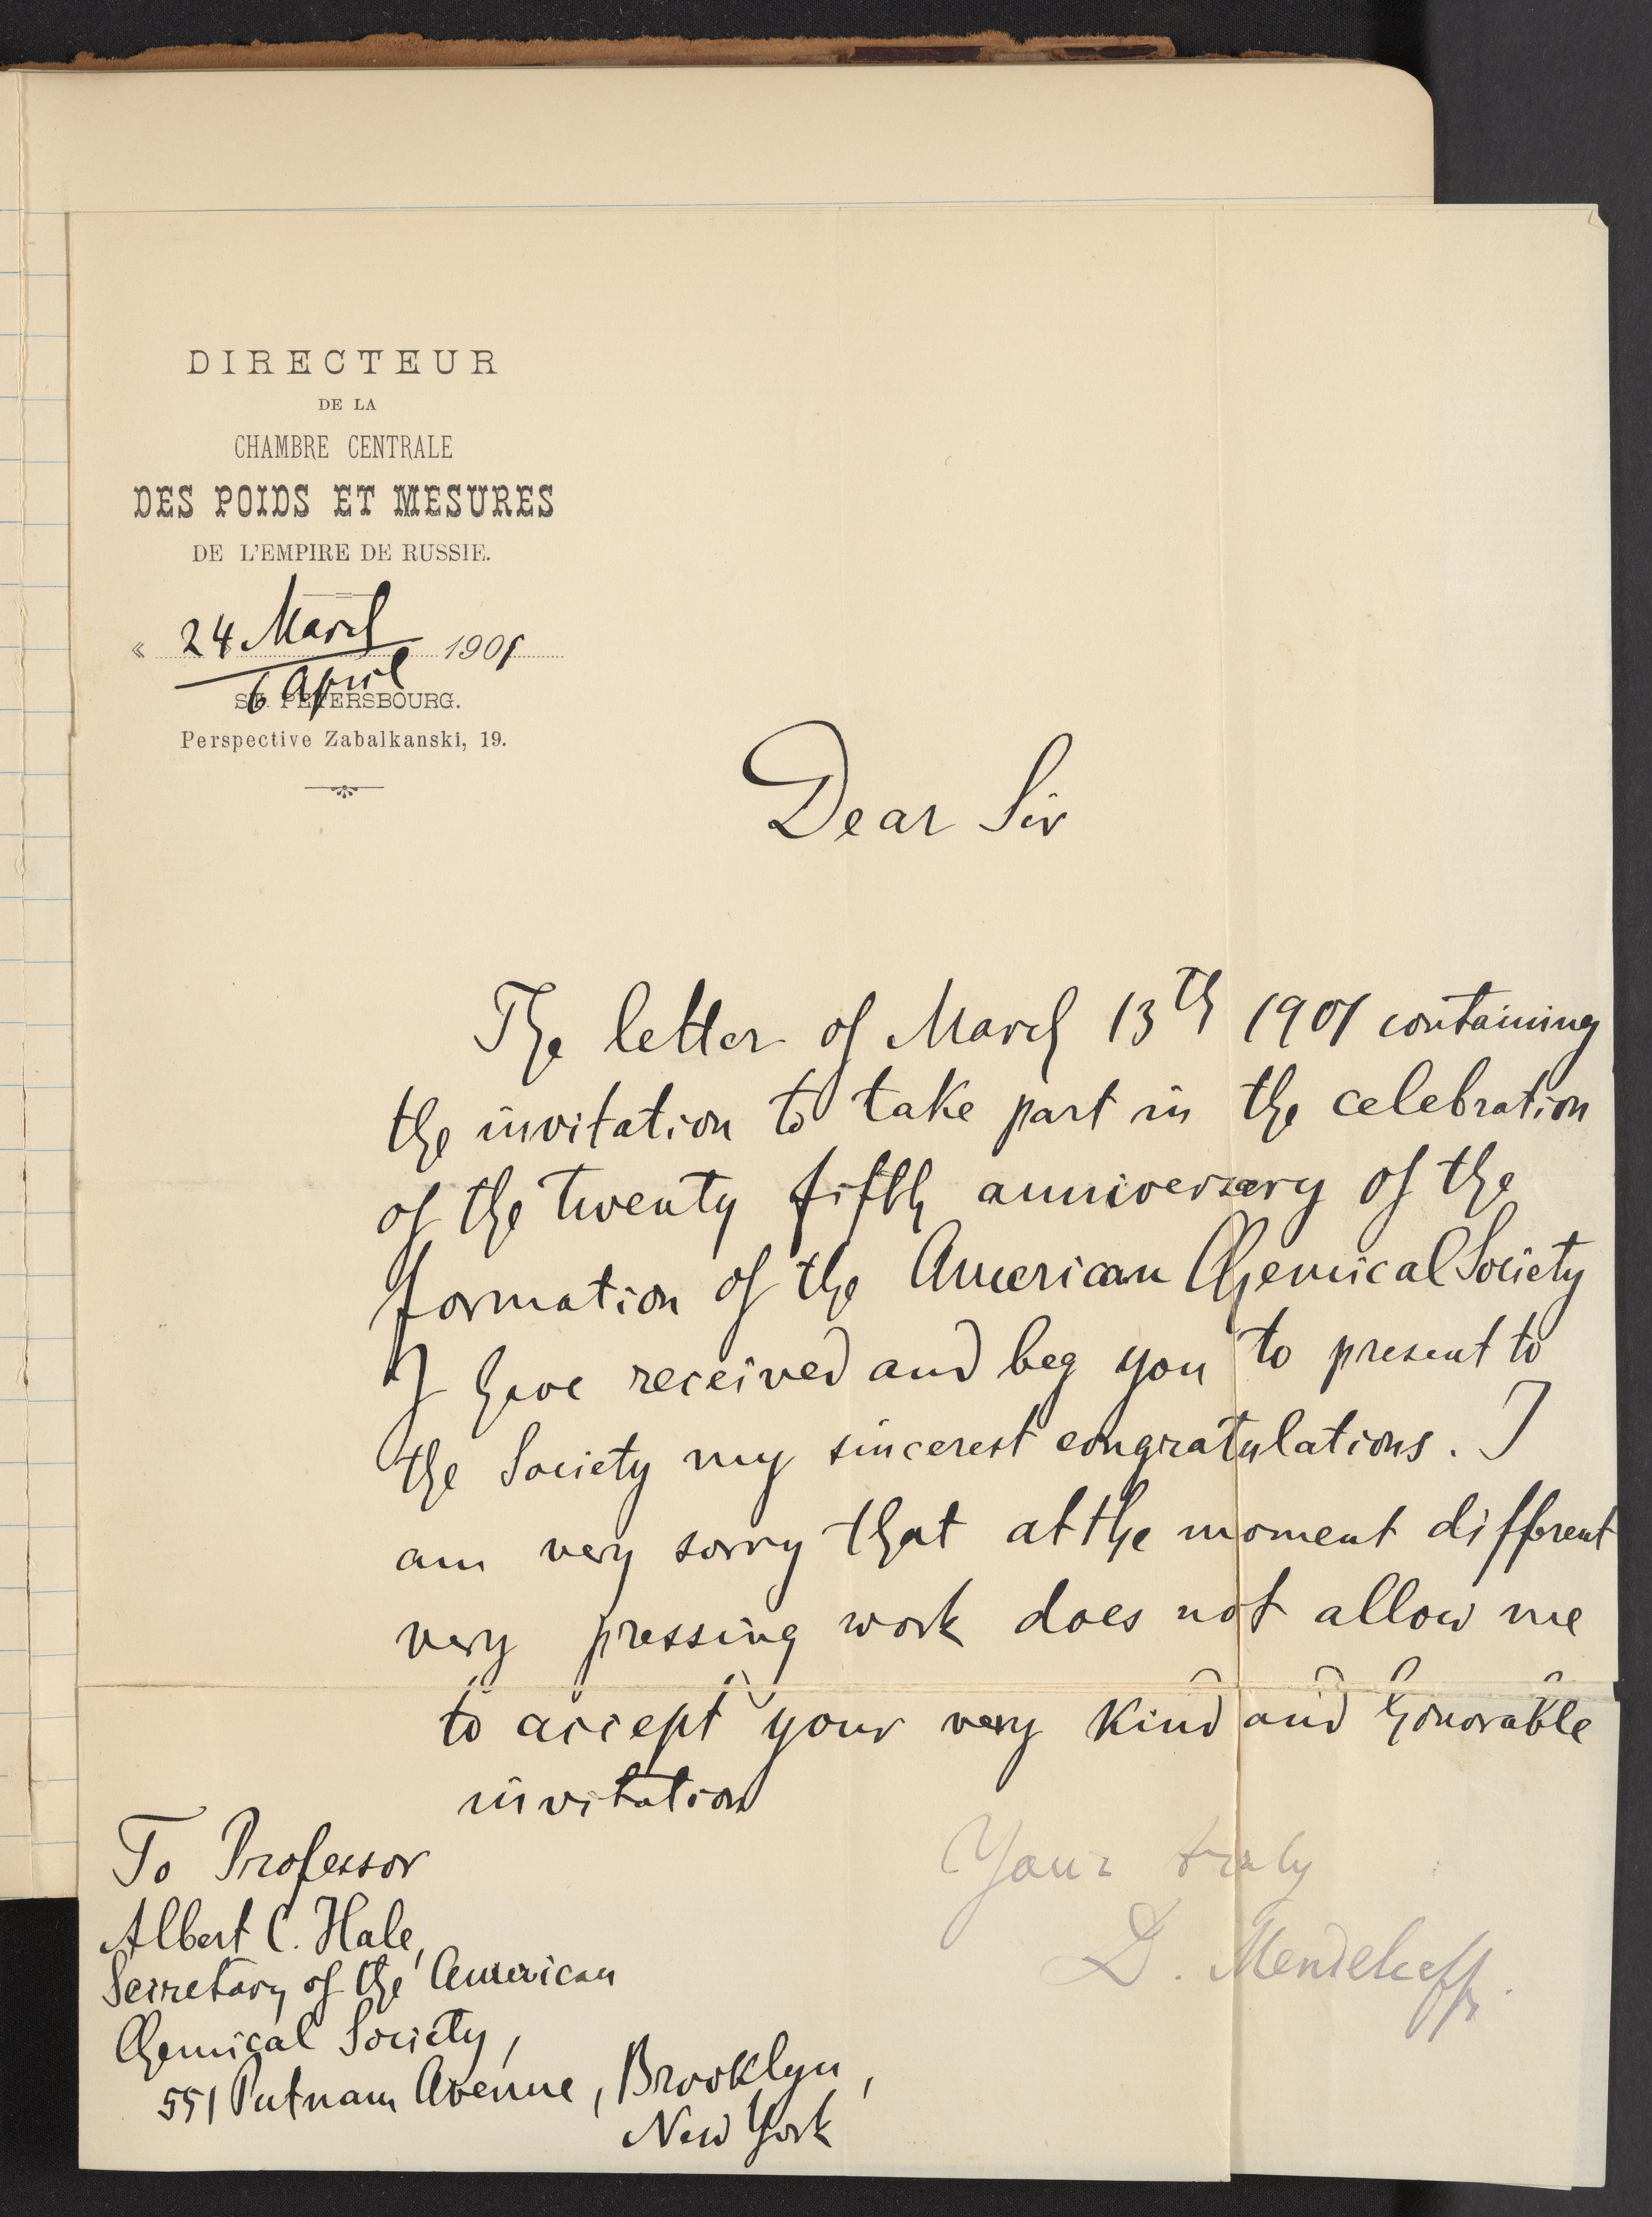 DIRECTEUR
DE LA
CHAMBRE CENTRALE
DES POIDS ET MESURES
DE L'EMPIRE DE RUSSIE.
« 24 March 1901
6 April
ST. PETERSBOURG.
Perspective Zabalkanski, 19.
Dear Sir
The letter of March 13th 1901 containing
the invitation to take part in the celebration
of the twenty fifth anniversary of the
formation of the American Chemical Society
I have received and beg you to present to
the Society my sincerest congratulations. I
am very sorry that at the moment different
very pressing work does not allow me
to accept your very kind and honorable
invitation
Your truly
D. Mendeleeff.
To Professor
Albert C. Hale,
Secretary of the American
Chemical Society,
551 Putnam Avenue, Brooklyn,
New York